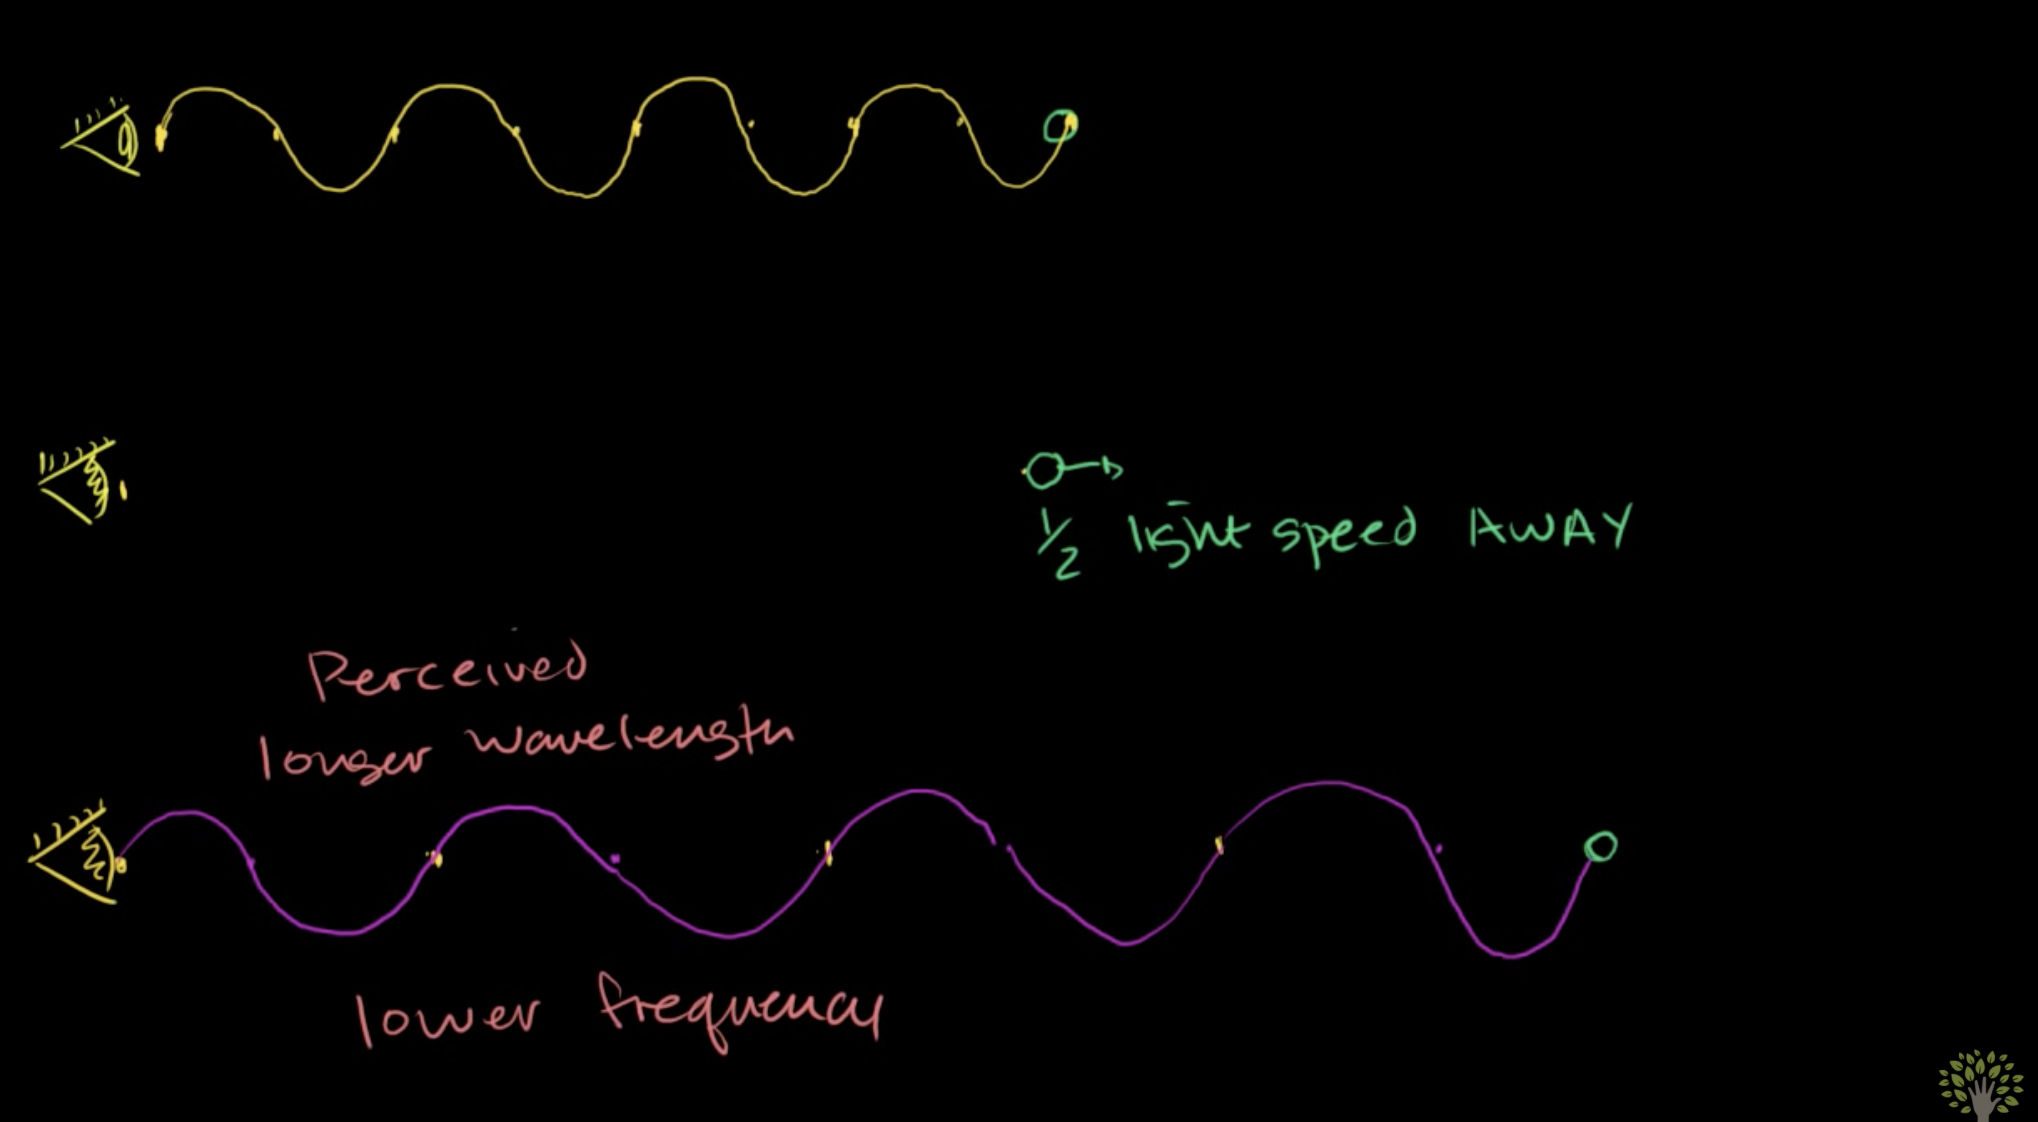 1/2 light speed AWAY
Perceived
longer wavelength
lower frequency